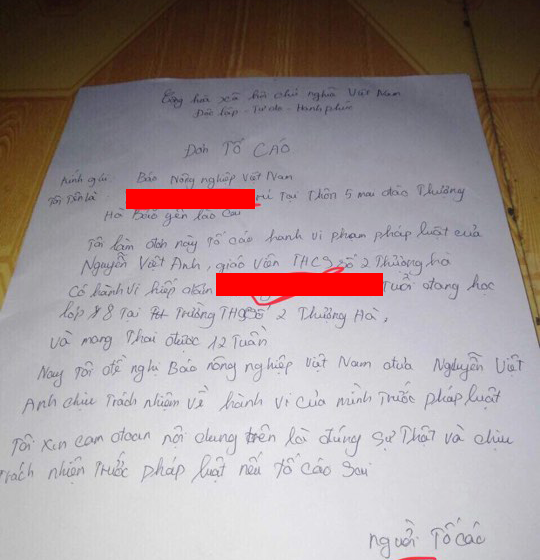 Cộng hòa xã hội chủ nghĩa Việt Nam
Độc lập - Tự do - Hạnh phúc
Đơn Tố CÁO
Kính gửi: Báo Nông nghiệp Việt Nam
Tôi Tên là : trú Tại Thôn 5 mai đào Thượng
Hà Bảo yên lào cai
Tôi làm đơn này Tố cáo hành vi phạm pháp luật của
Nguyễn Việt Anh, giáo viên THCS số 2 Thượng hà
Có hành vi hiếp dâm Tuổi đang học
lớp 8 Tại Trường THCS số 2 Thượng Hà,
và mang Thai được 12 Tuần
Nay Tôi đề nghị Báo nông nghiệp Việt Nam đưa Nguyễn Việt
Anh chịu Trách nhiệm về hành vi của mình Trước pháp luật
Tôi xin cam đoan nội dung trên là đúng sự Thật và chịu
Trách nhiệm Trước pháp luật nếu Tố cáo Sai
Người Tố cáo